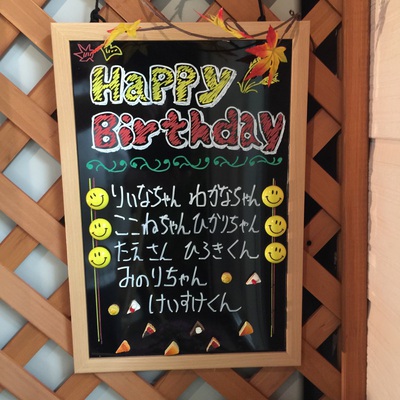 Happy
Birthday
りいなちゃん わかなちゃん
ここねちゃん ひかりちゃん
たえさん ひろきくん
みのりちゃん
けいすけくん